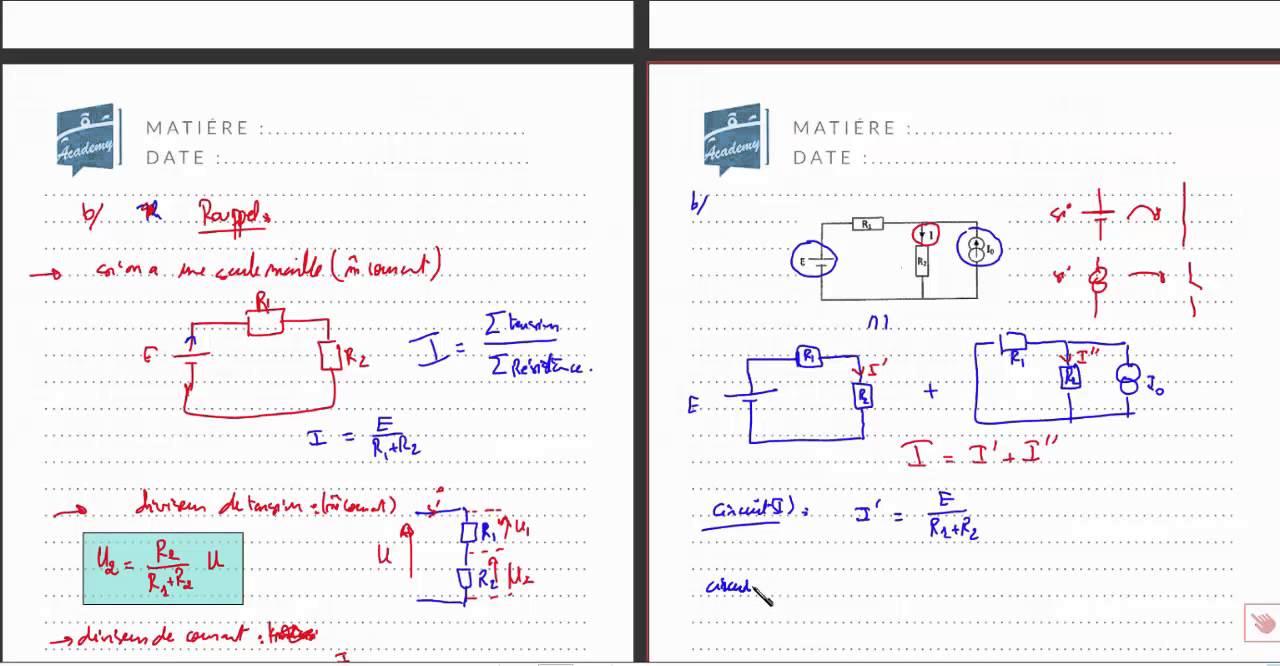 Academy
MATIÈRE :
DATE :
b/ Rappel
→ si on a une seule maille (m̂ courant)
R1
E
R2
I = Σ tension / Σ Résistance.
I = E / R1+R2
→ diviseur de tension : (m̂ courant)
U
R1
U1
R2
U2
U2 = R2 / R1+R2 U
→ diviseur de courant :
I
Academy
MATIÈRE :
DATE :
b/
R1
I
E
R2
I0
si
si
E
R1
I'
R2
+
R1
I''
R2
I0
I = I' + I''
Circuit(I) : I' = E / R1+R2
circui